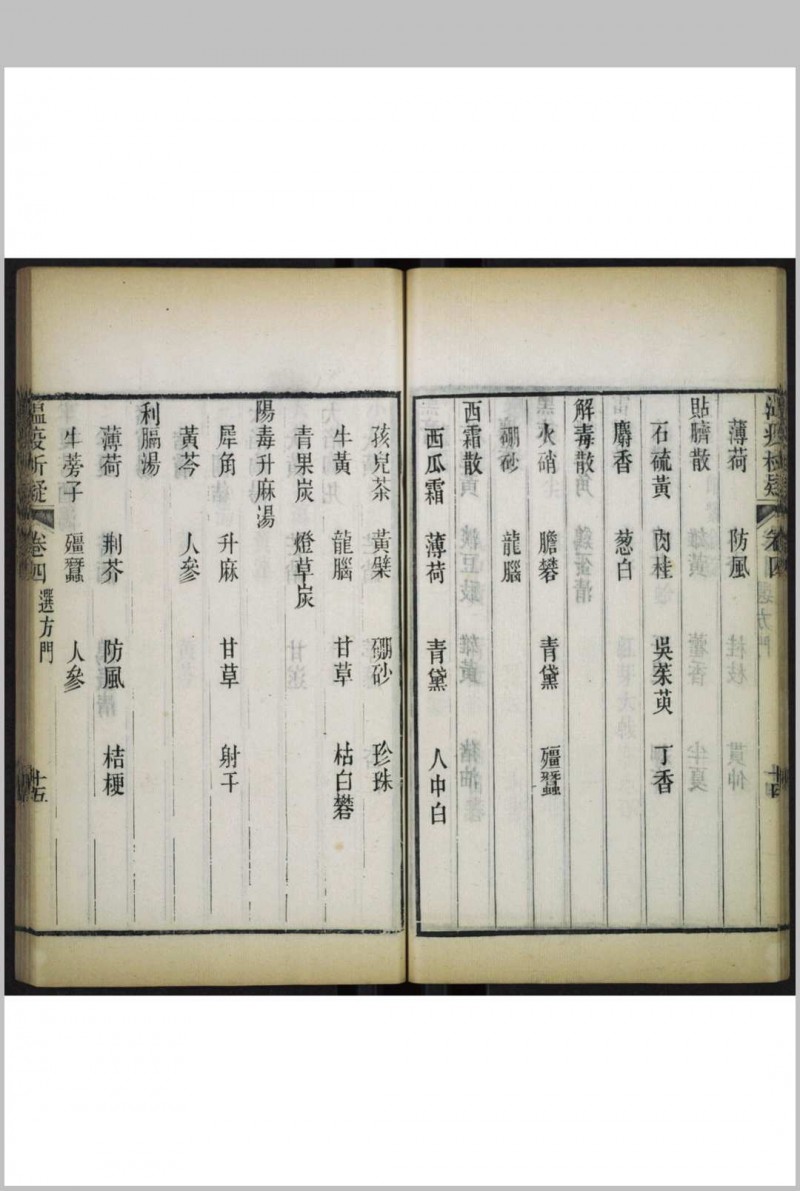 薄荷 防風
貼臍散
石硫黃 肉桂 吳茱萸 丁香
麝香 葱白
解毒散
火硝 膽礬 青黛 殭蠶
硼砂 龍腦
西霜散
西瓜霜 薄荷 青黛 人中白
孩兒茶 黃檗 硼砂 珍珠
牛黃 龍腦 甘草 枯白礬
青果炭 燈草炭
陽毒升麻湯
犀角 升麻 甘草 射干
黃芩 人參
利膈湯
薄荷 荆芥 防風 桔梗
牛蒡子 殭蠶 人參
卷四 選方門 十五